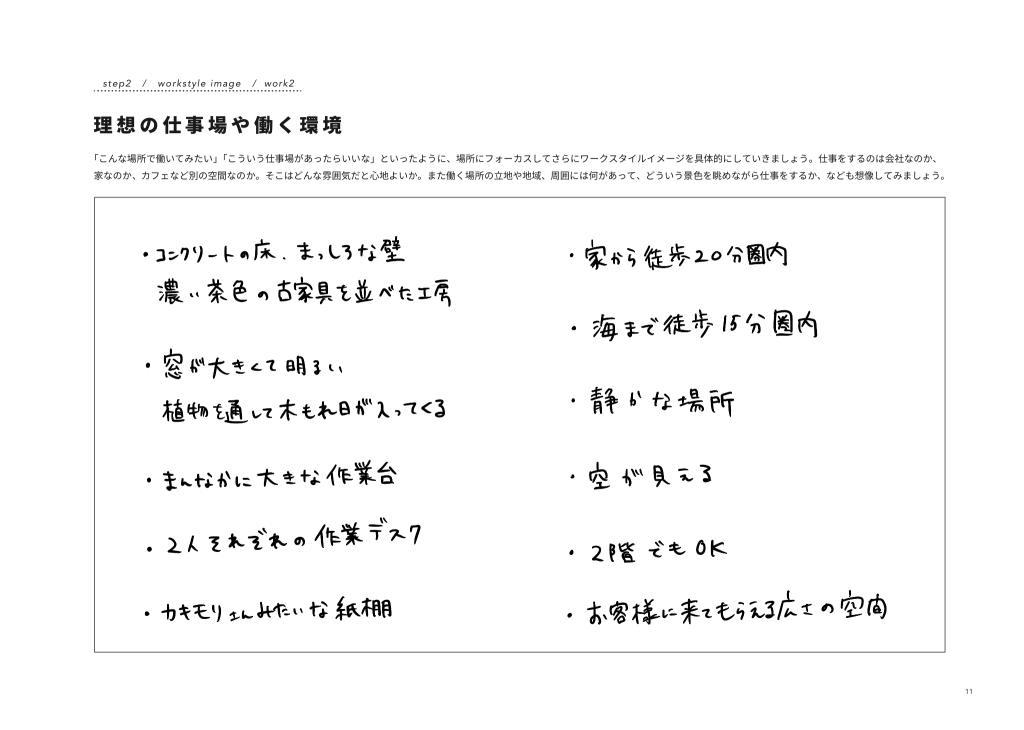 step2 / workstyle image / work2
理想の仕事場や働く環境
「こんな場所で働いてみたい」「こういう仕事場があったらいいな」といったように、場所にフォーカスしてさらにワークスタイルイメージを具体的にしていきましょう。仕事をするのは会社なのか、
家なのか、カフェなど別の空間なのか。そこはどんな雰囲気だと心地よいか。また働く場所の立地や地域、周囲には何があって、どういう景色を眺めながら仕事をするか、なども想像してみましょう。
・コンクリートの床、まっしろな壁
濃い茶色の古家具を並べた工房
・窓が大きくて明るい
植物を通して木もれ日が入ってくる
・まんなかに大きな作業台
・2人それぞれの作業デスク
・カキモリさんみたいな紙棚
・家から徒歩20分圏内
・海まで徒歩15分圏内
・静かな場所
・空が見える
・2階でもOK
・お客様に来てもらえる広さの空間
11